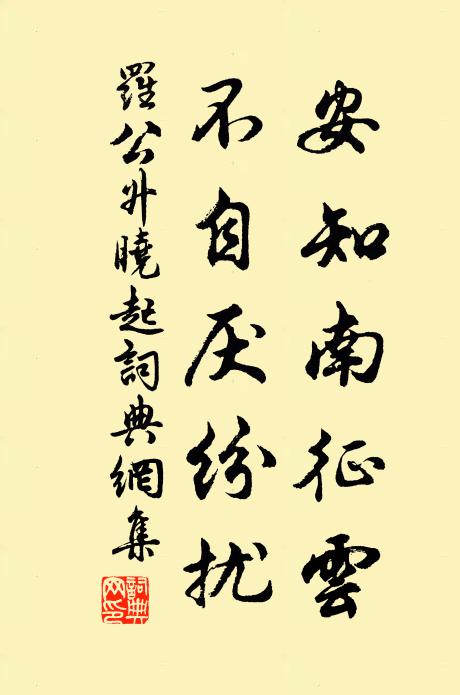 安知南征雲
不自厌纷扰
羅公升曉起詞典網集
詞典網印